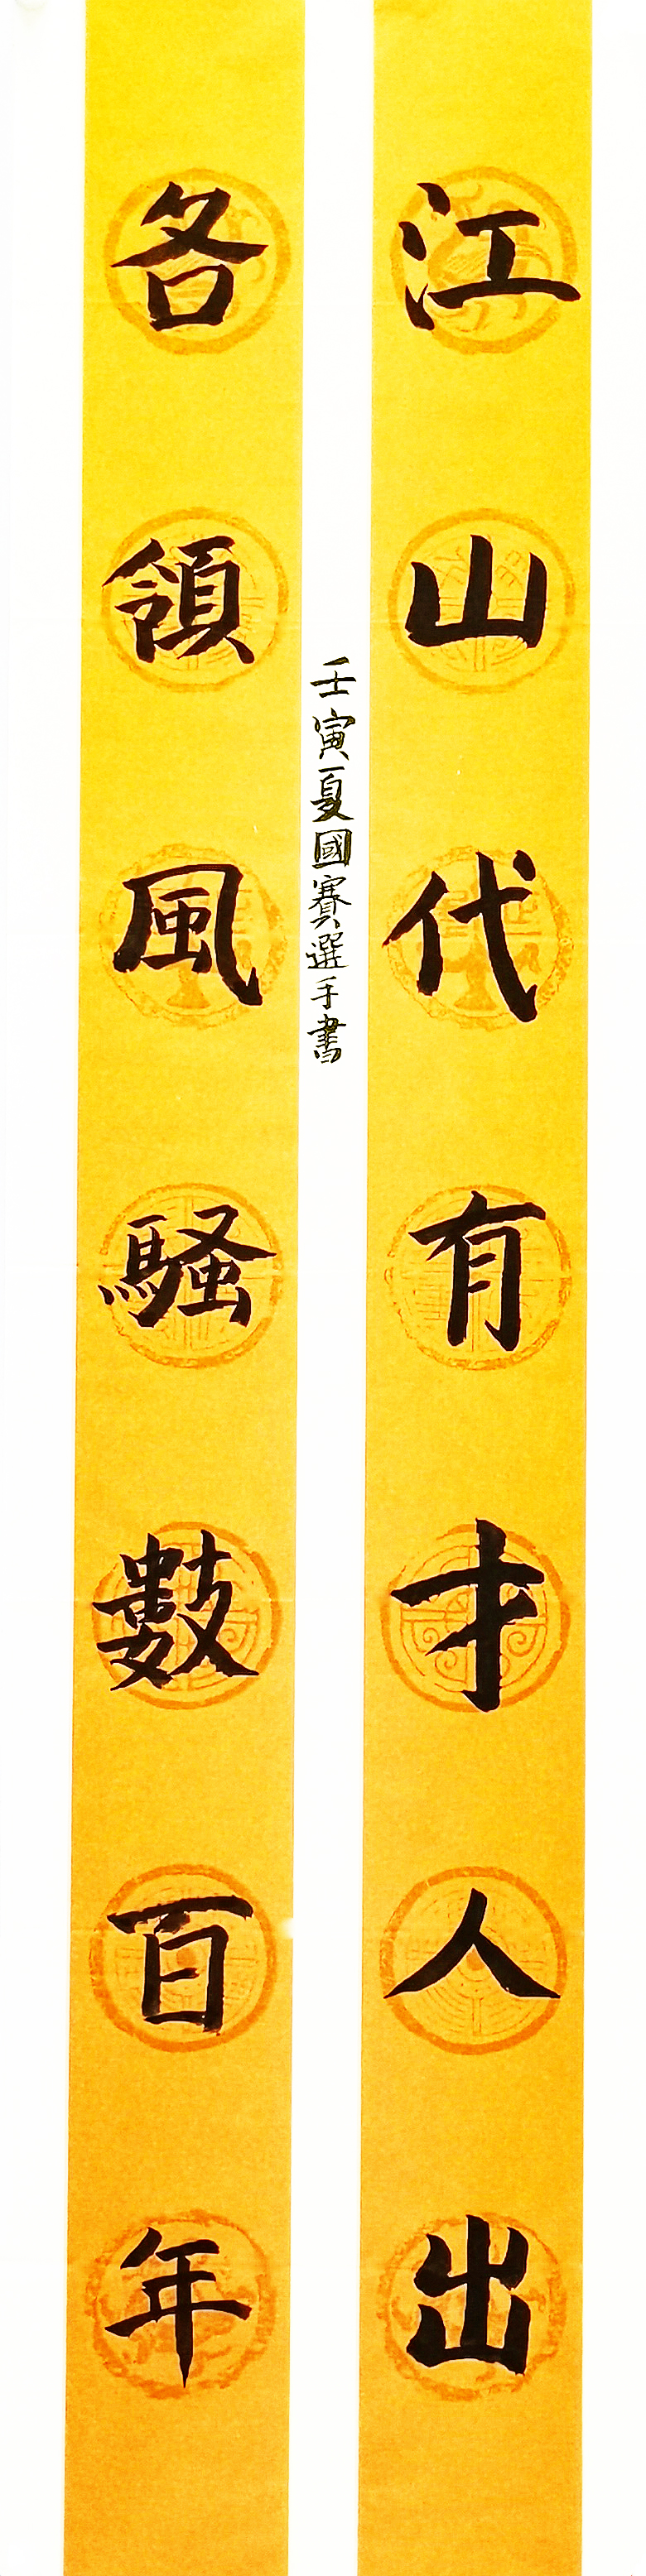 江山代有才人出
各領風騷數百年
壬寅夏國賽選手書